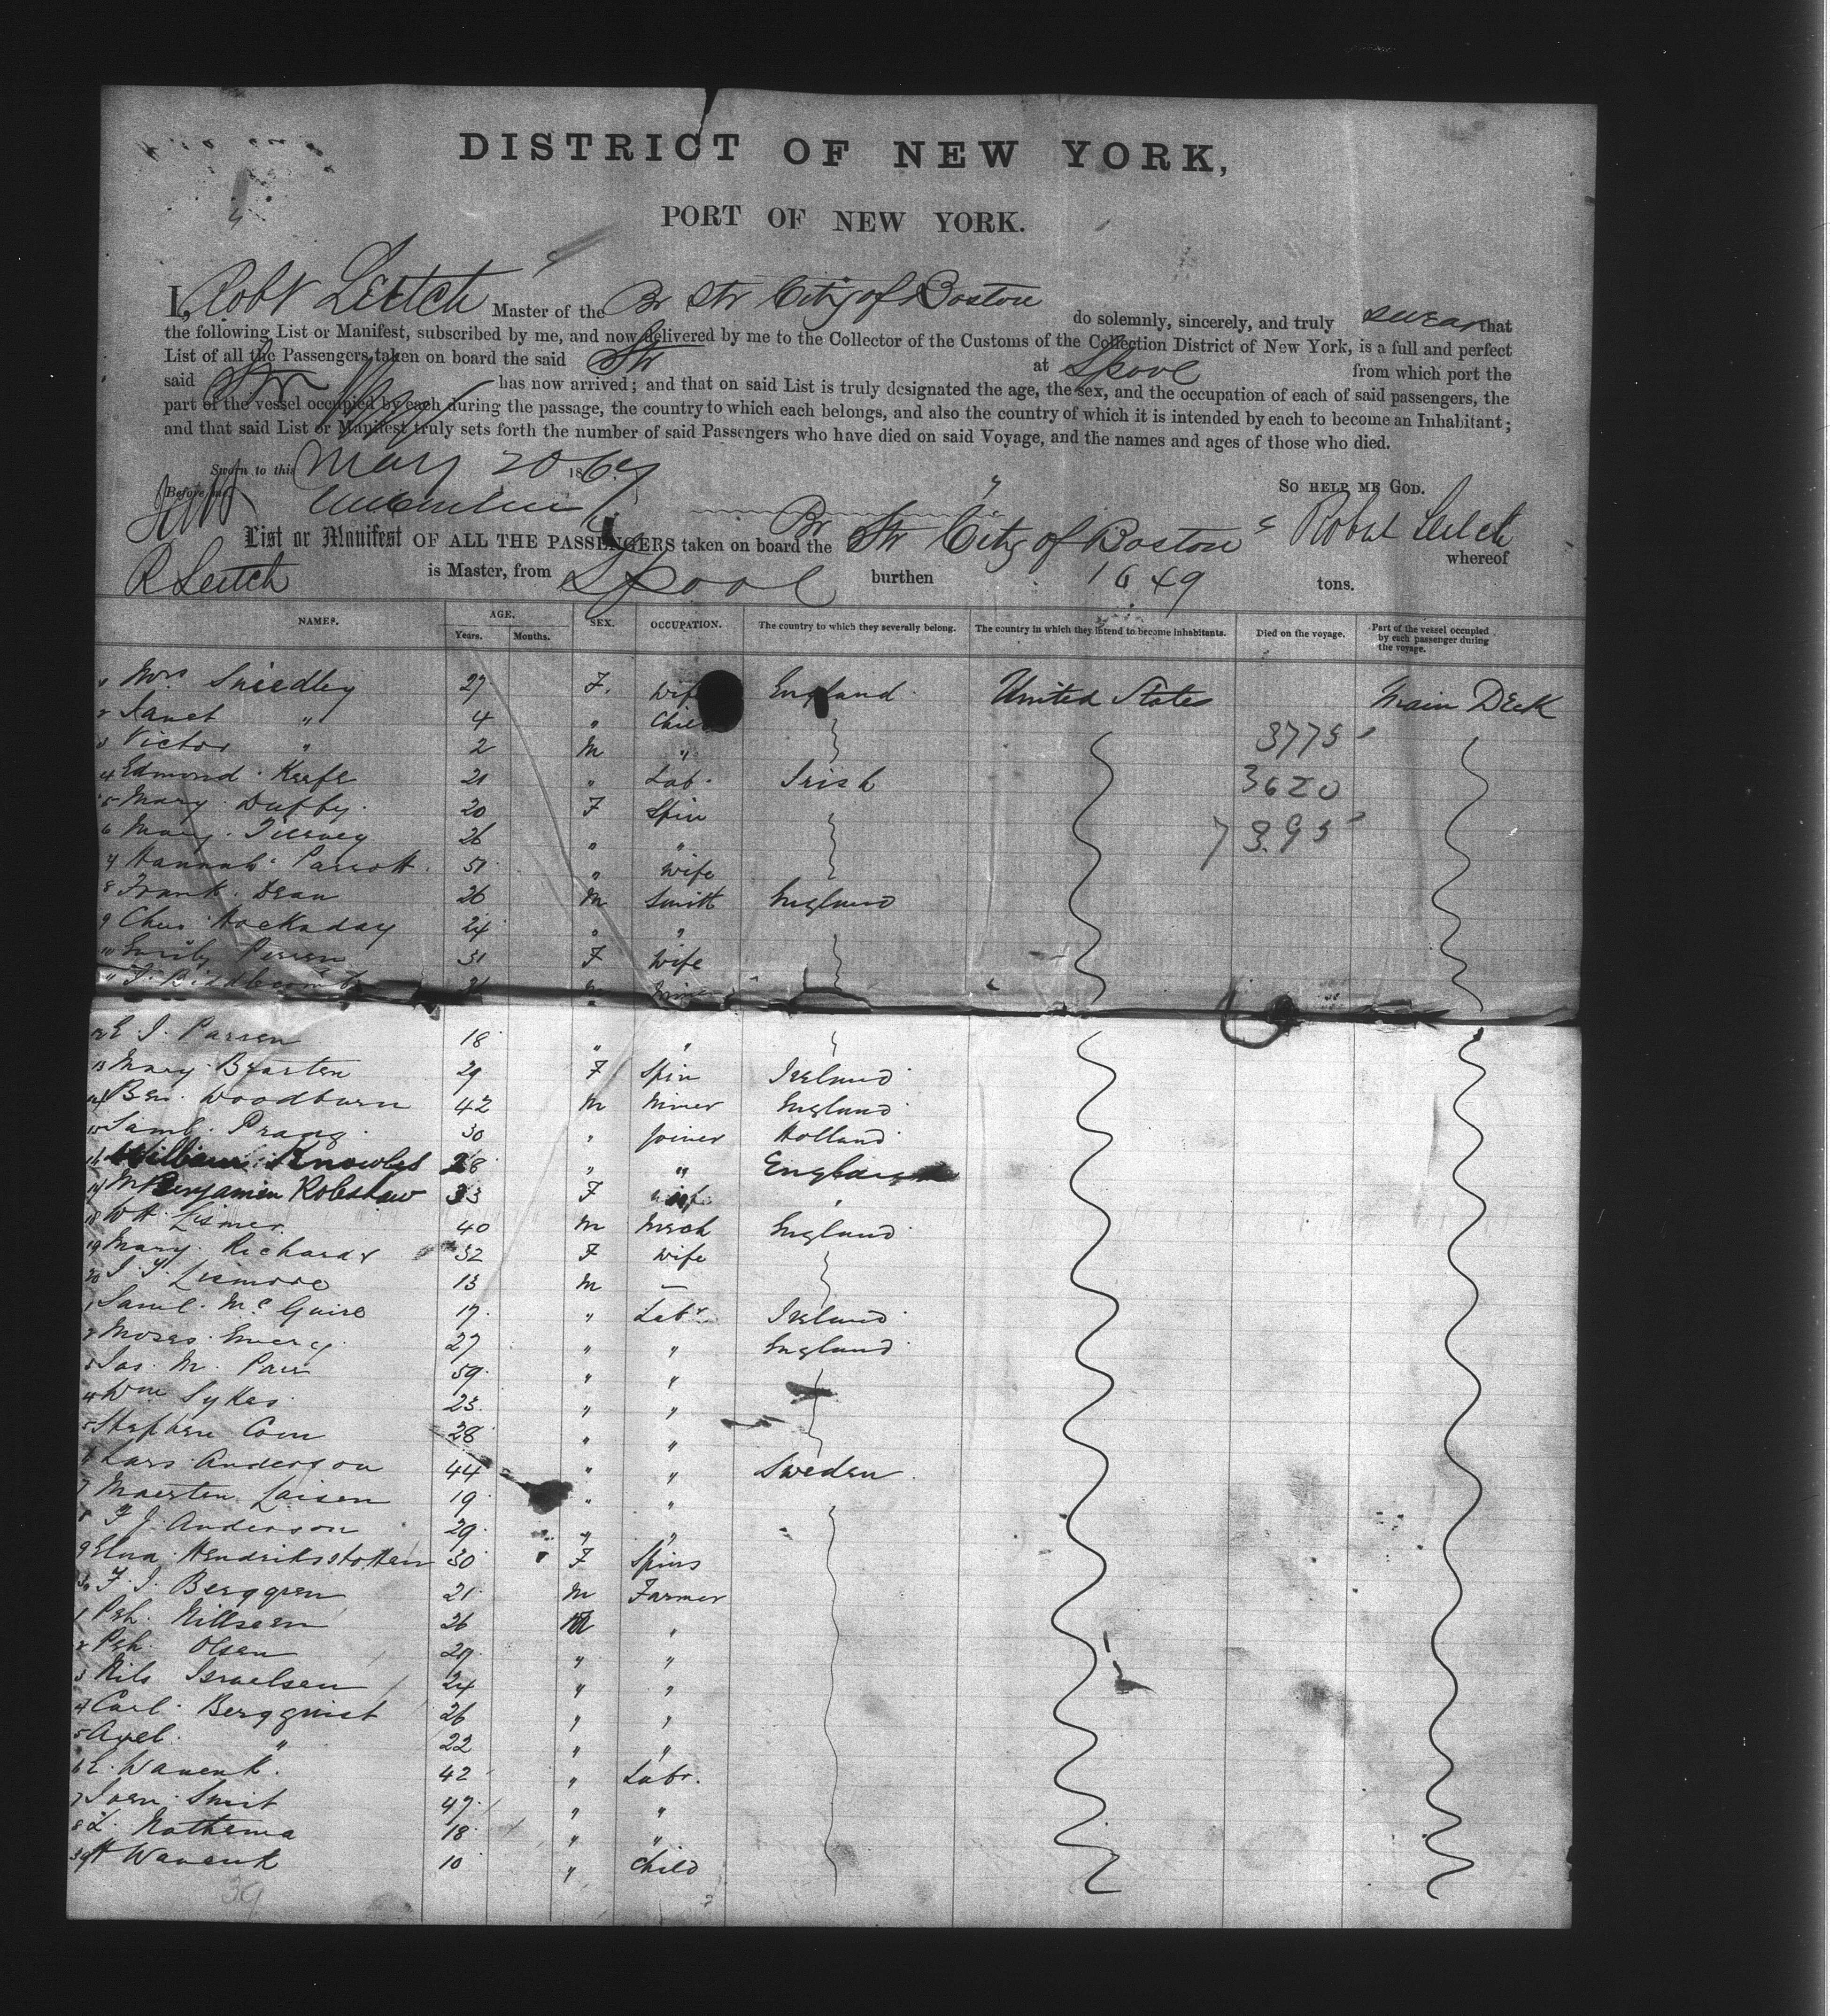 DISTRICT OF NEW YORK,
PORT OF NEW YORK.
I, Robt Leitch Master of the Br Str City of Boston do solemnly, sincerely, and truly swear that
the following List or Manifest, subscribed by me, and now delivered by me to the Collector of the Customs of the Collection District of New York, is a full and perfect
List of all the Passengers taken on board the said Str at Lpool from which port the
said Str has now arrived; and that on said List is truly designated the age, the sex, and the occupation of each of said passengers, the
part of the vessel occupied by each during the passage, the country to which each belongs, and also the country of which it is intended by each to become an Inhabitant;
and that said List or Manifest truly sets forth the number of said Passengers who have died on said Voyage, and the names and ages of those who died.
Sworn to this May 20 1869
Before me, SO HELP ME GOD.
List or Manifest OF ALL THE PASSENGERS taken on board the Br Str City of Boston Robt Leitch whereof
R Leitch is Master, from Lpool burthen 1649 tons.
NAMES. AGE. Years. Months. SEX. OCCUPATION. The country to which they severally belong. The country in which they intend to become inhabitants. Died on the voyage. Part of the vessel occupied by each passenger during the voyage.
1 Mrs Smedley 27 F. Wife England United States Main Deck
2 Janet " 4 " Child
3 Victor " 2 M " 3775
4 Edmond Keefe 21 " Lab. Irish 3620
5 Mary Duffy 20 F Spin
6 Mary Tierney 26 " " 7395
7 Hannah Parrott 51 " Wife
8 Frank Dean 26 M Smith England
9 Chas Hockaday 24 " "
10 Emily Perren 31 F Wife
11 J. Biddlecombe 21
12 E J. Parren 18 " "
13 Mary 29 F Spin Ireland
14 Ben. Woodburn 42 M Miner England
15 Saml. Praag 30 " Joiner Holland
16 William Knowles 28 " " England
17 Benjamin Robshaw 33 F Wife
18 W H Lismer 40 M Mech England
19 Mary Richards 32 F Wife
20 J. Y. Lismore 13 M —
1 Saml. McGuire 17 " Labr Ireland
2 Moses Emery 27 " " England
3 Jas. M. Parr 59 " "
4 Wm Sykes 23 " "
5 Stephen Corn 28 " "
6 Lars Anderson 44 " " Sweden
7 Maerten Laisen 19 " "
8 F J. Anderson 29 " "
9 Elna 30 F Spins
30 F. J. Berggren 21 M Farmer
1 Peh. Nillsern 26 M "
2 Peh. Olsen 29 " "
3 Nils Israelsen 24 " "
4 Carl Bergquist 26 " "
5 Axel " 22 " "
6 E. Wanenk. 42 " Labr.
7 Joen Smit 47 " "
8 L. Nothema 18 " "
39 H Wanenk 10 " Child
39